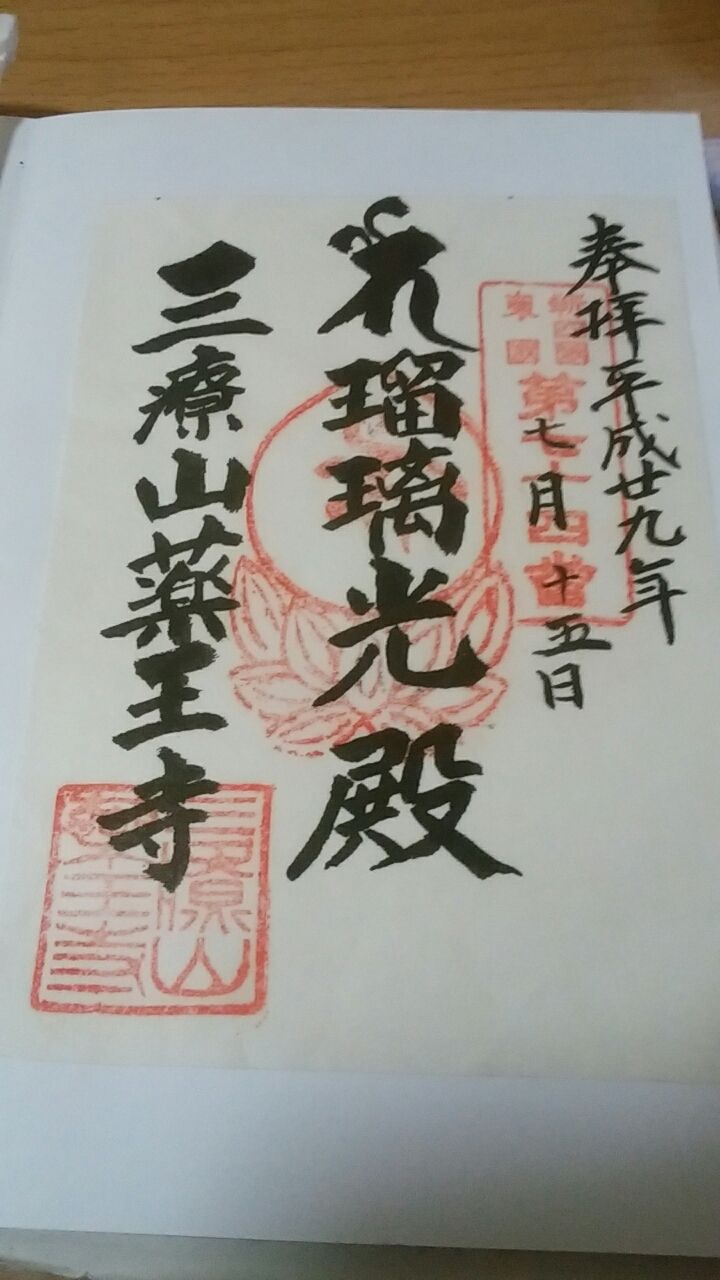 奉拝 平成廿九年
七月十五日
瑠璃光殿
三療山薬王寺
三療山
薬王寺